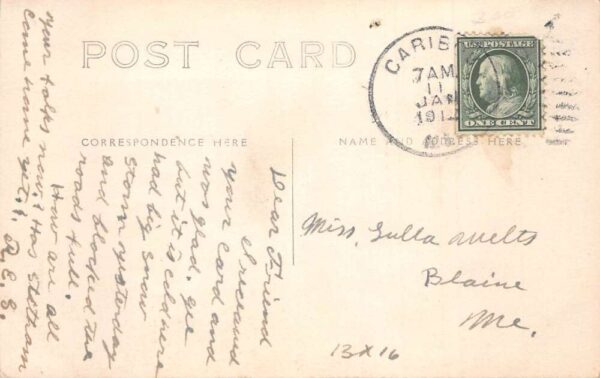 POST CARD
CORRESPONDENCE HERE
NAME AND ADDRESS HERE
CARIB
7 AM
11
JAN
191
U.S. POSTAGE
ONE CENT
Dear Friend
I recieved
your card and
was glad.
but it is cold here
had big snow
storm yesterday
and blocked the
roads full.
How are all
your folks now? Has
come home yet?
Miss.
Blaine
Me.
13 x 16